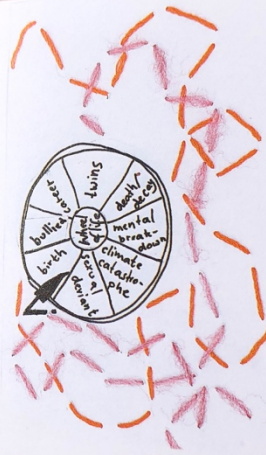 wheel
of life
twins
death/
decay
mental
break-
down
climate
catastro-
phe
sexual
deviant
birth
bullied
career